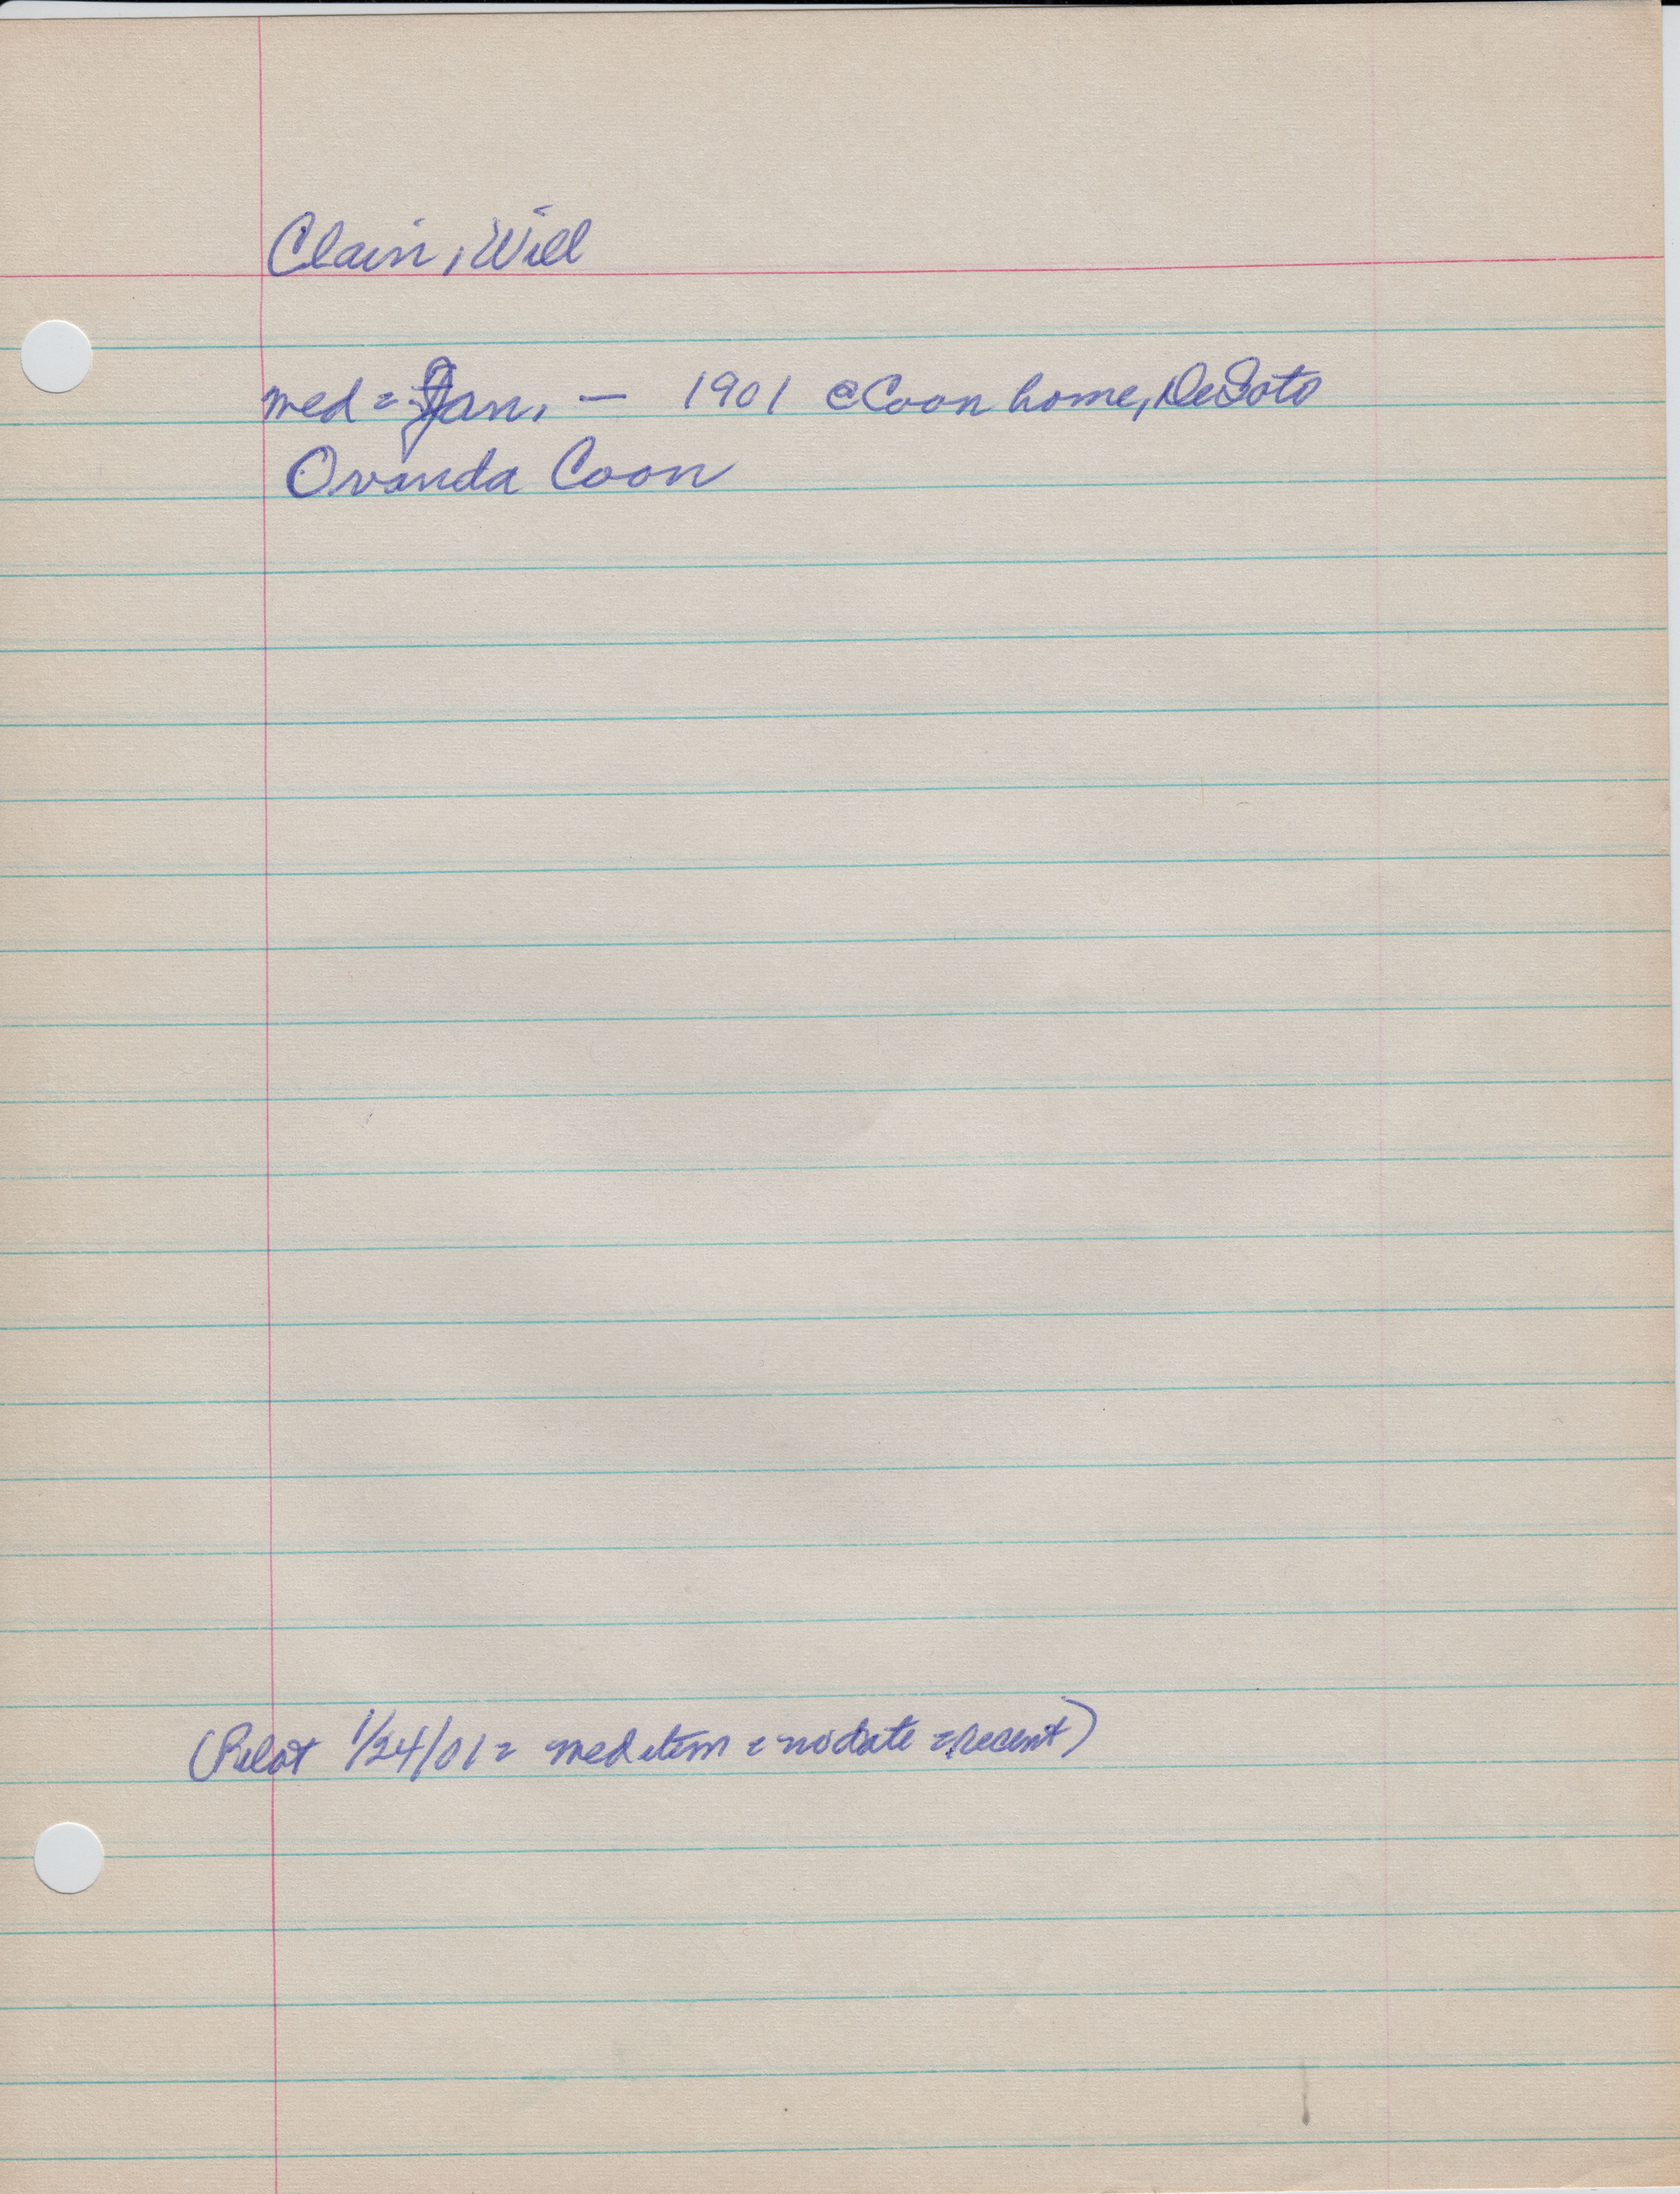 Clain, Will
med = Jan. — 1901 @ Coon home, DeSoto
Ovanda Coon
(Pilot 1/24/01 = med item = no date = recent)